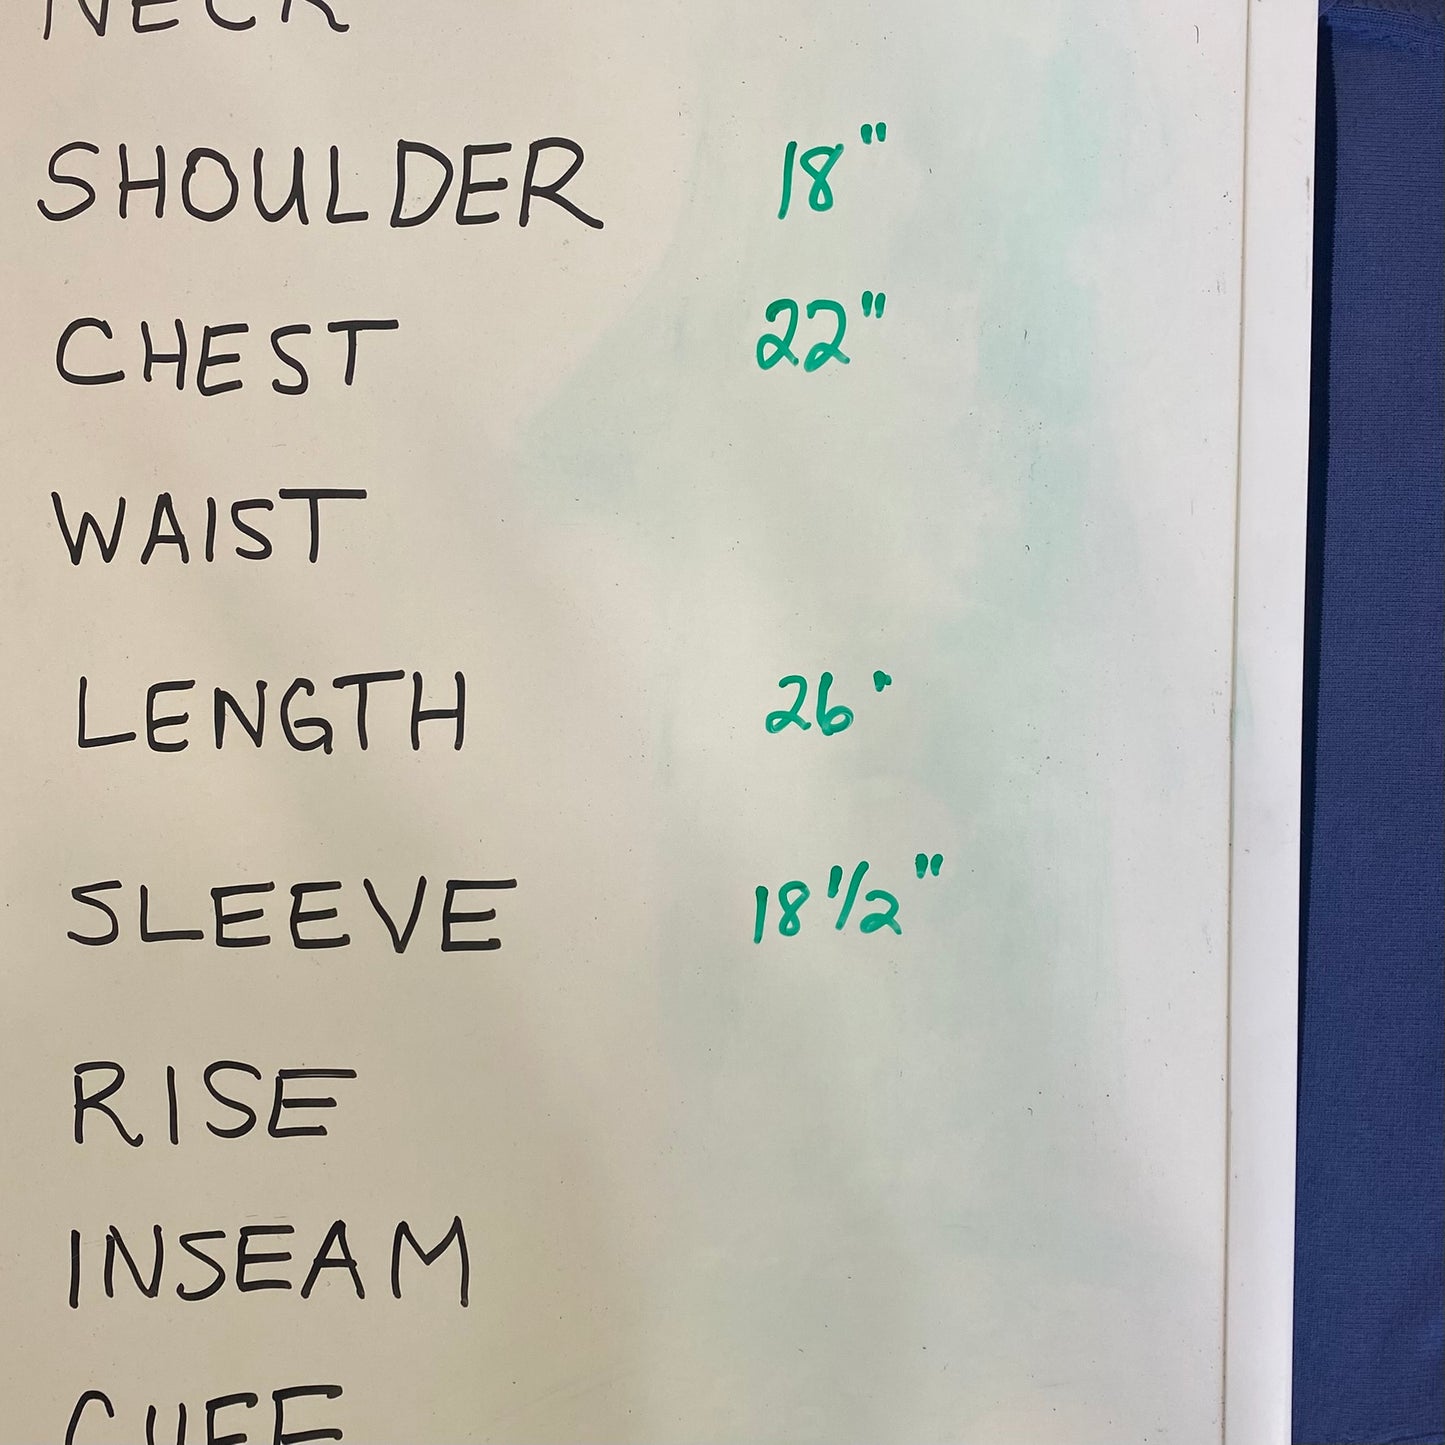 NECK
SHOULDER 18"
CHEST 22"
WAIST
LENGTH 26"
SLEEVE 18 1/2"
RISE
INSEAM
CUFF